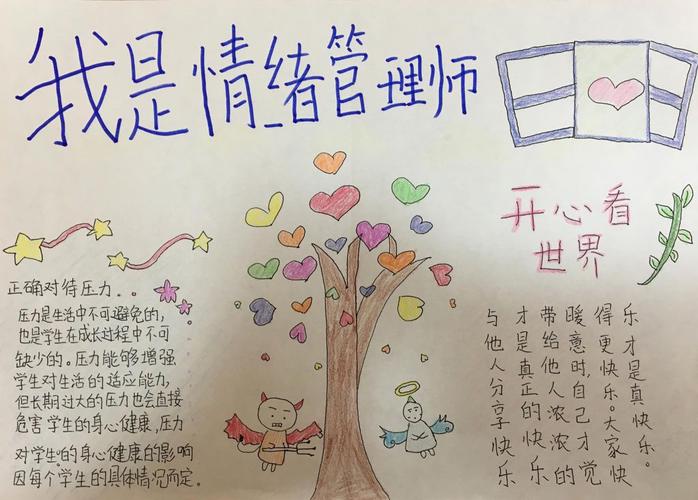 我是情绪管理师
正确对待压力..
压力是生活中不可避免的,
也是学生在成长过程中不可
缺少的。压力能够增强
学生对生活的适应能力,
但长期过大的压力也会直接
危害学生的身心健康,压力
对学生的身心健康的影响
因每个学生的具体情况而定。
开心看
世界
与他人分享快乐
才是真正的快乐
带给他人浓浓的
暖意时,自己才觉
得更快乐。大家快
乐才是真快乐。